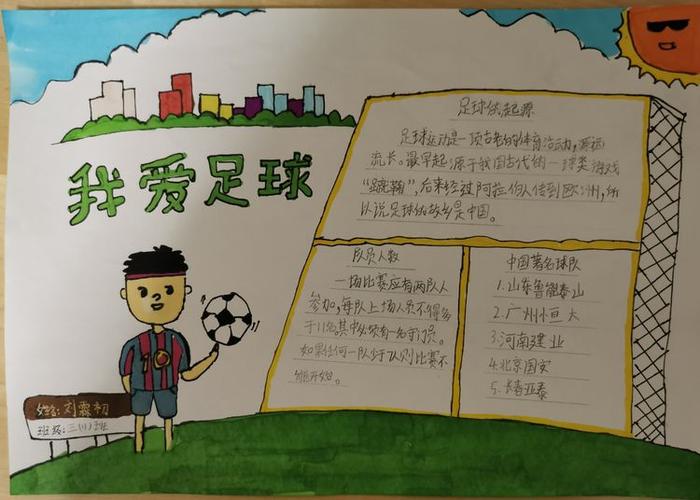 我爱足球
足球的起源
足球运动是一项古老的体育活动,源远
流长。最早起源于我国古代的一种球类游戏
“蹴鞠”,后来经过阿拉伯人传到欧洲,所
以说足球的故乡是中国。
队员人数
一场比赛应有两队人
参加,每队上场人员不得多
于11名其中必须有一名守门员。
如果任何一队少于7人则比赛不
能开始。
中国著名球队
1.山东鲁能泰山
2.广州恒大
3.河南建业
4.北京国安
5.长春亚泰
10
姓名:刘霖初
班级:三(1)班